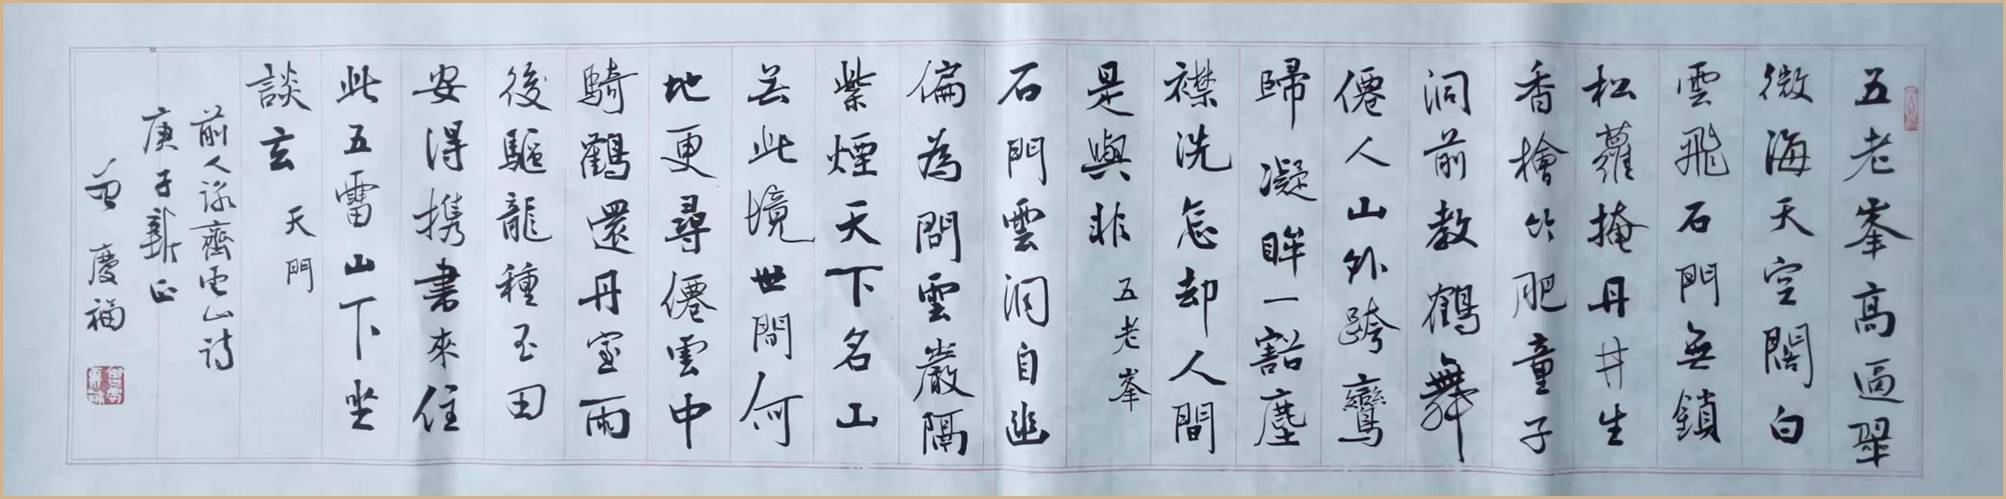 五老峯高逼翠
微海天空闊白
雲飛石門無鎖
松蘿掩丹井生
香檜竹肥童子
洞前教鶴舞
僊人山外跨鸞
歸凝眸一豁塵
襟洗怎却人間
是與非 五老峯
石門雲洞自幽
偏為問雲巖隔
紫煙天下名山
無此境世間何
地更尋僊雲中
騎鶴還丹室雨
後驅龍種玉田
安得攜書來住
此五雷山下坐
談玄 天門
前人詠齊雲山詩
庚子新正
曾慶福